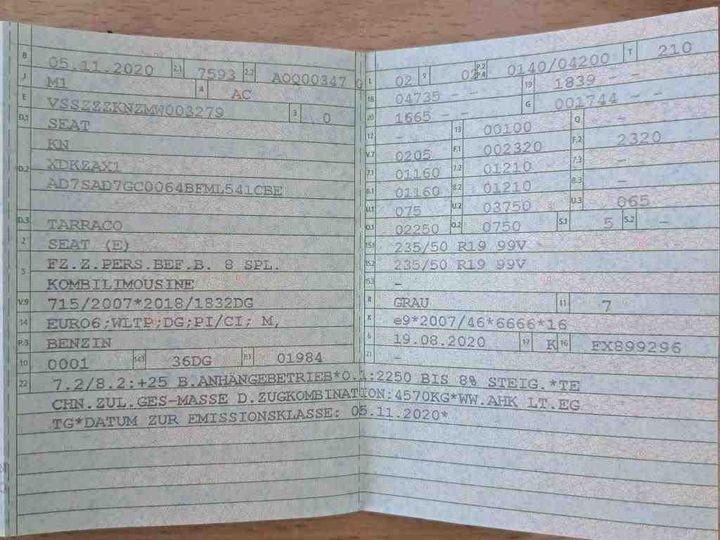 B 05.11.2020 2.1 7593 2.2 AOQ00347 0
J M1 4 AC
E VSSZZZKNZMW003279 3 0
D.1 SEAT
KN
D.2 XDKZAX1
AD7SAD7GC0064BFML541CBE
D.3 TARRACO
2 SEAT (E)
5 FZ.Z.PERS.BEF.B. 8 SPL.
KOMBILIMOUSINE
V.9 715/2007*2018/1832DG
14 EURO6;WLTP;DG;PI/CI; M,
P.3 BENZIN
10 0001 14.1 36DG P.1 01984
L 02 9 02 P.2 P.4 0140/04200 T 210
18 04735 - - 19 1839 - -
20 1665 - - G 001744 - -
12 - 13 00100 Q -
V.7 0205 F.1 002320 F.2 2320
7.1 01160 7.2 01210 7.3 -
8.1 01160 8.2 01210 8.3 -
U.1 075 U.2 03750 U.3 065
O.1 02250 O.2 0750 S.1 5 S.2 -
15.1 235/50 R19 99V
15.2 235/50 R19 99V
15.3 -
R GRAU 11 7
K e9*2007/46*6666*16
6 19.08.2020 17 K 16 FX899296
21 -
22 7.2/8.2:+25 B.ANHÄNGEBETRIEB*O.1:2250 BIS 8% STEIG.*TE
CHN.ZUL.GES-MASSE D.ZUGKOMBINATION:4570KG*WW.AHK LT.EG
TG*DATUM ZUR EMISSIONSKLASSE: 05.11.2020*